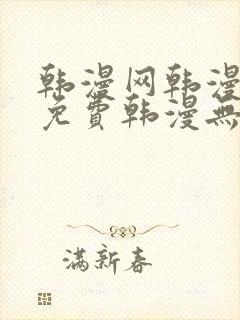 韩漫网韩漫
免費韩漫無
满新春